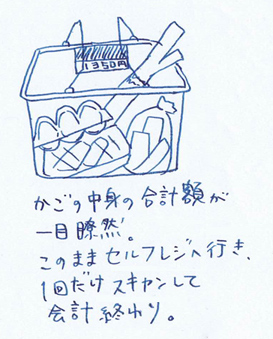 1350円
かごの中身の合計額が
一目瞭然。
このままセルフレジへ行き、
1回だけスキャンして
会計終わり。